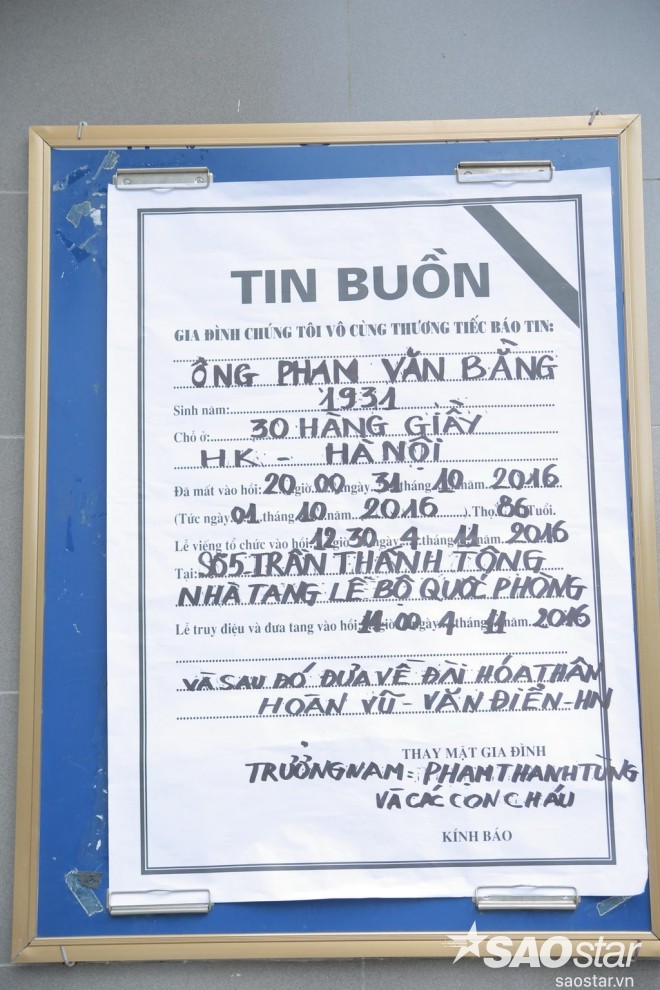 TIN BUỒN
GIA ĐÌNH CHÚNG TÔI VÔ CÙNG THƯƠNG TIẾC BÁO TIN:
ÔNG PHAM VĂN BẰNG
Sinh năm: 1931
Chỗ ở: 30 HÀNG GIẦY
HK - HÀ NỘI
Đã mất vào hồi: 20 giờ 00 ngày 31 tháng 10 năm 2016
(Tức ngày 01 tháng 10 năm 2016 ). Thọ 86 tuổi.
Lễ viếng tổ chức vào hồi 12 giờ 30 ngày 4 tháng 11 năm 2016
Tại: SỐ 5 TRẦN THÁNH TÔNG
NHÀ TANG LỄ BỘ QUỐC PHÒNG
Lễ truy điệu và đưa tang vào hồi 14 giờ 00 ngày 4 tháng 11 năm 2016
VÀ SAU ĐÓ ĐƯA VỀ ĐÀI HÓA THÂN
HOÀN VŨ - VĂN ĐIỂN - HN
THAY MẶT GIA ĐÌNH
TRƯỞNG NAM: PHẠM THANH TÙNG
VÀ CÁC CON CHÁU
KÍNH BÁO
SAOstar
saostar.vn